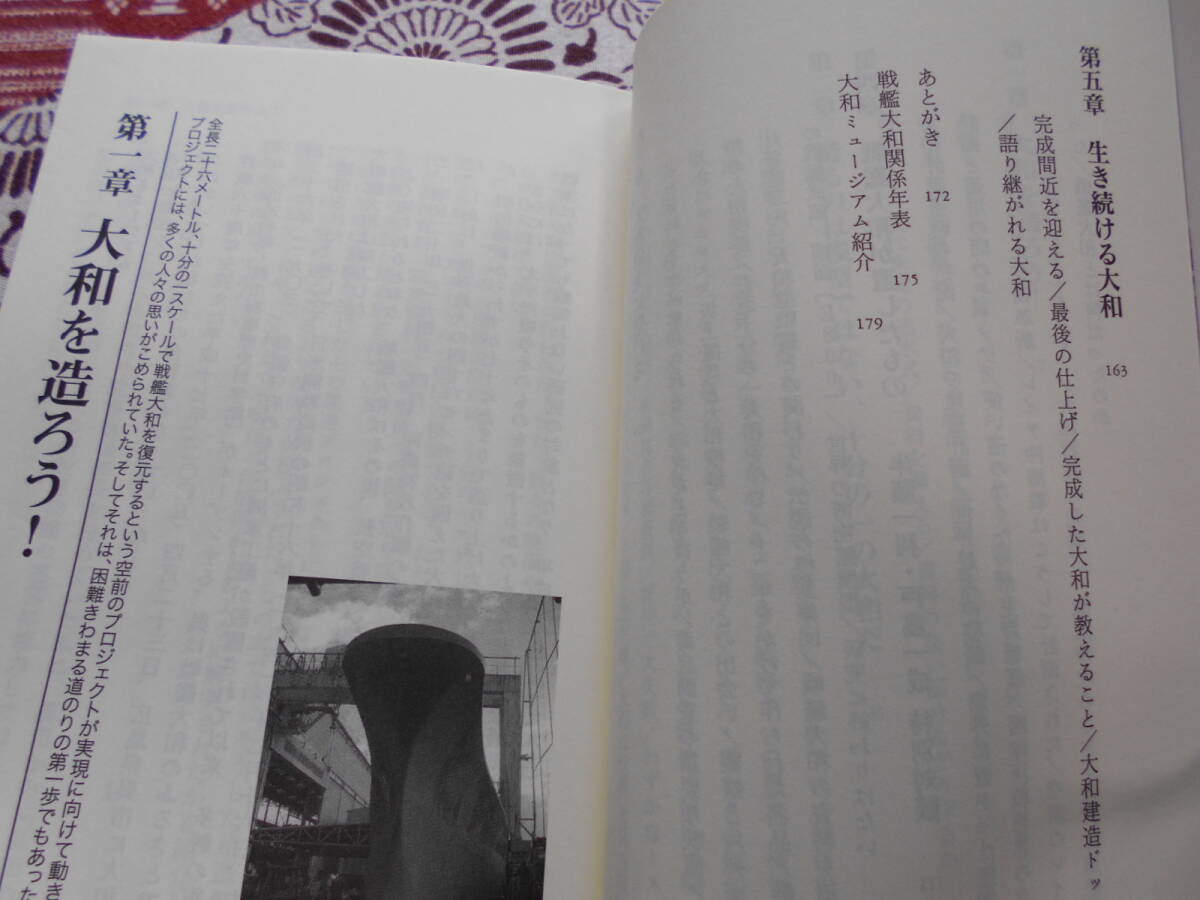 第五章　生き続ける大和　163
完成間近を迎える/最後の仕上げ/完成した大和が教えること/大和建造ドッ
/語り継がれる大和
あとがき　172
戦艦大和関係年表　175
大和ミュージアム紹介　179
全長二十六メートル、十分の一スケールで戦艦大和を復元するという空前のプロジェクトが実現に向けて動き
プロジェクトには、多くの人々の思いがこめられていた。そしてそれは、困難きわまる道のりの第一歩でもあった
第一章　大和を造ろう！